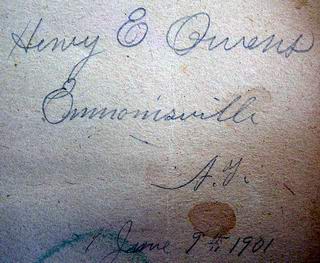 Henry E Owens
Emmonsville
N.Y.
June 9th 1901